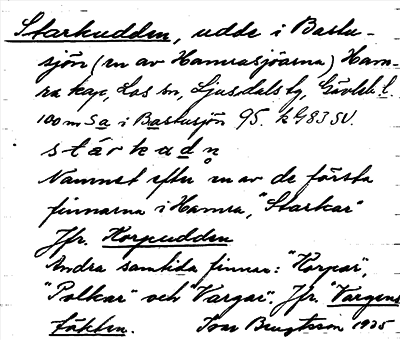 Starkudden, udde i Bastu-
sjön (en av Hamrasjöarna) Ham-
ra kap, Los sn, Ljusdals tg, Gävleb. l.
100 m Sa i Bastusjön 95. k G83 SV.
stárkadn
Namnet efter en av de första
finnarna i Hamra, "Starkar"
Jfr. Korpudden
Andra samtida finnar: "Korpar",
"Polkar" och "Vargar". Jfr. Vargens
täkten. Ivar Bengtsson 1935